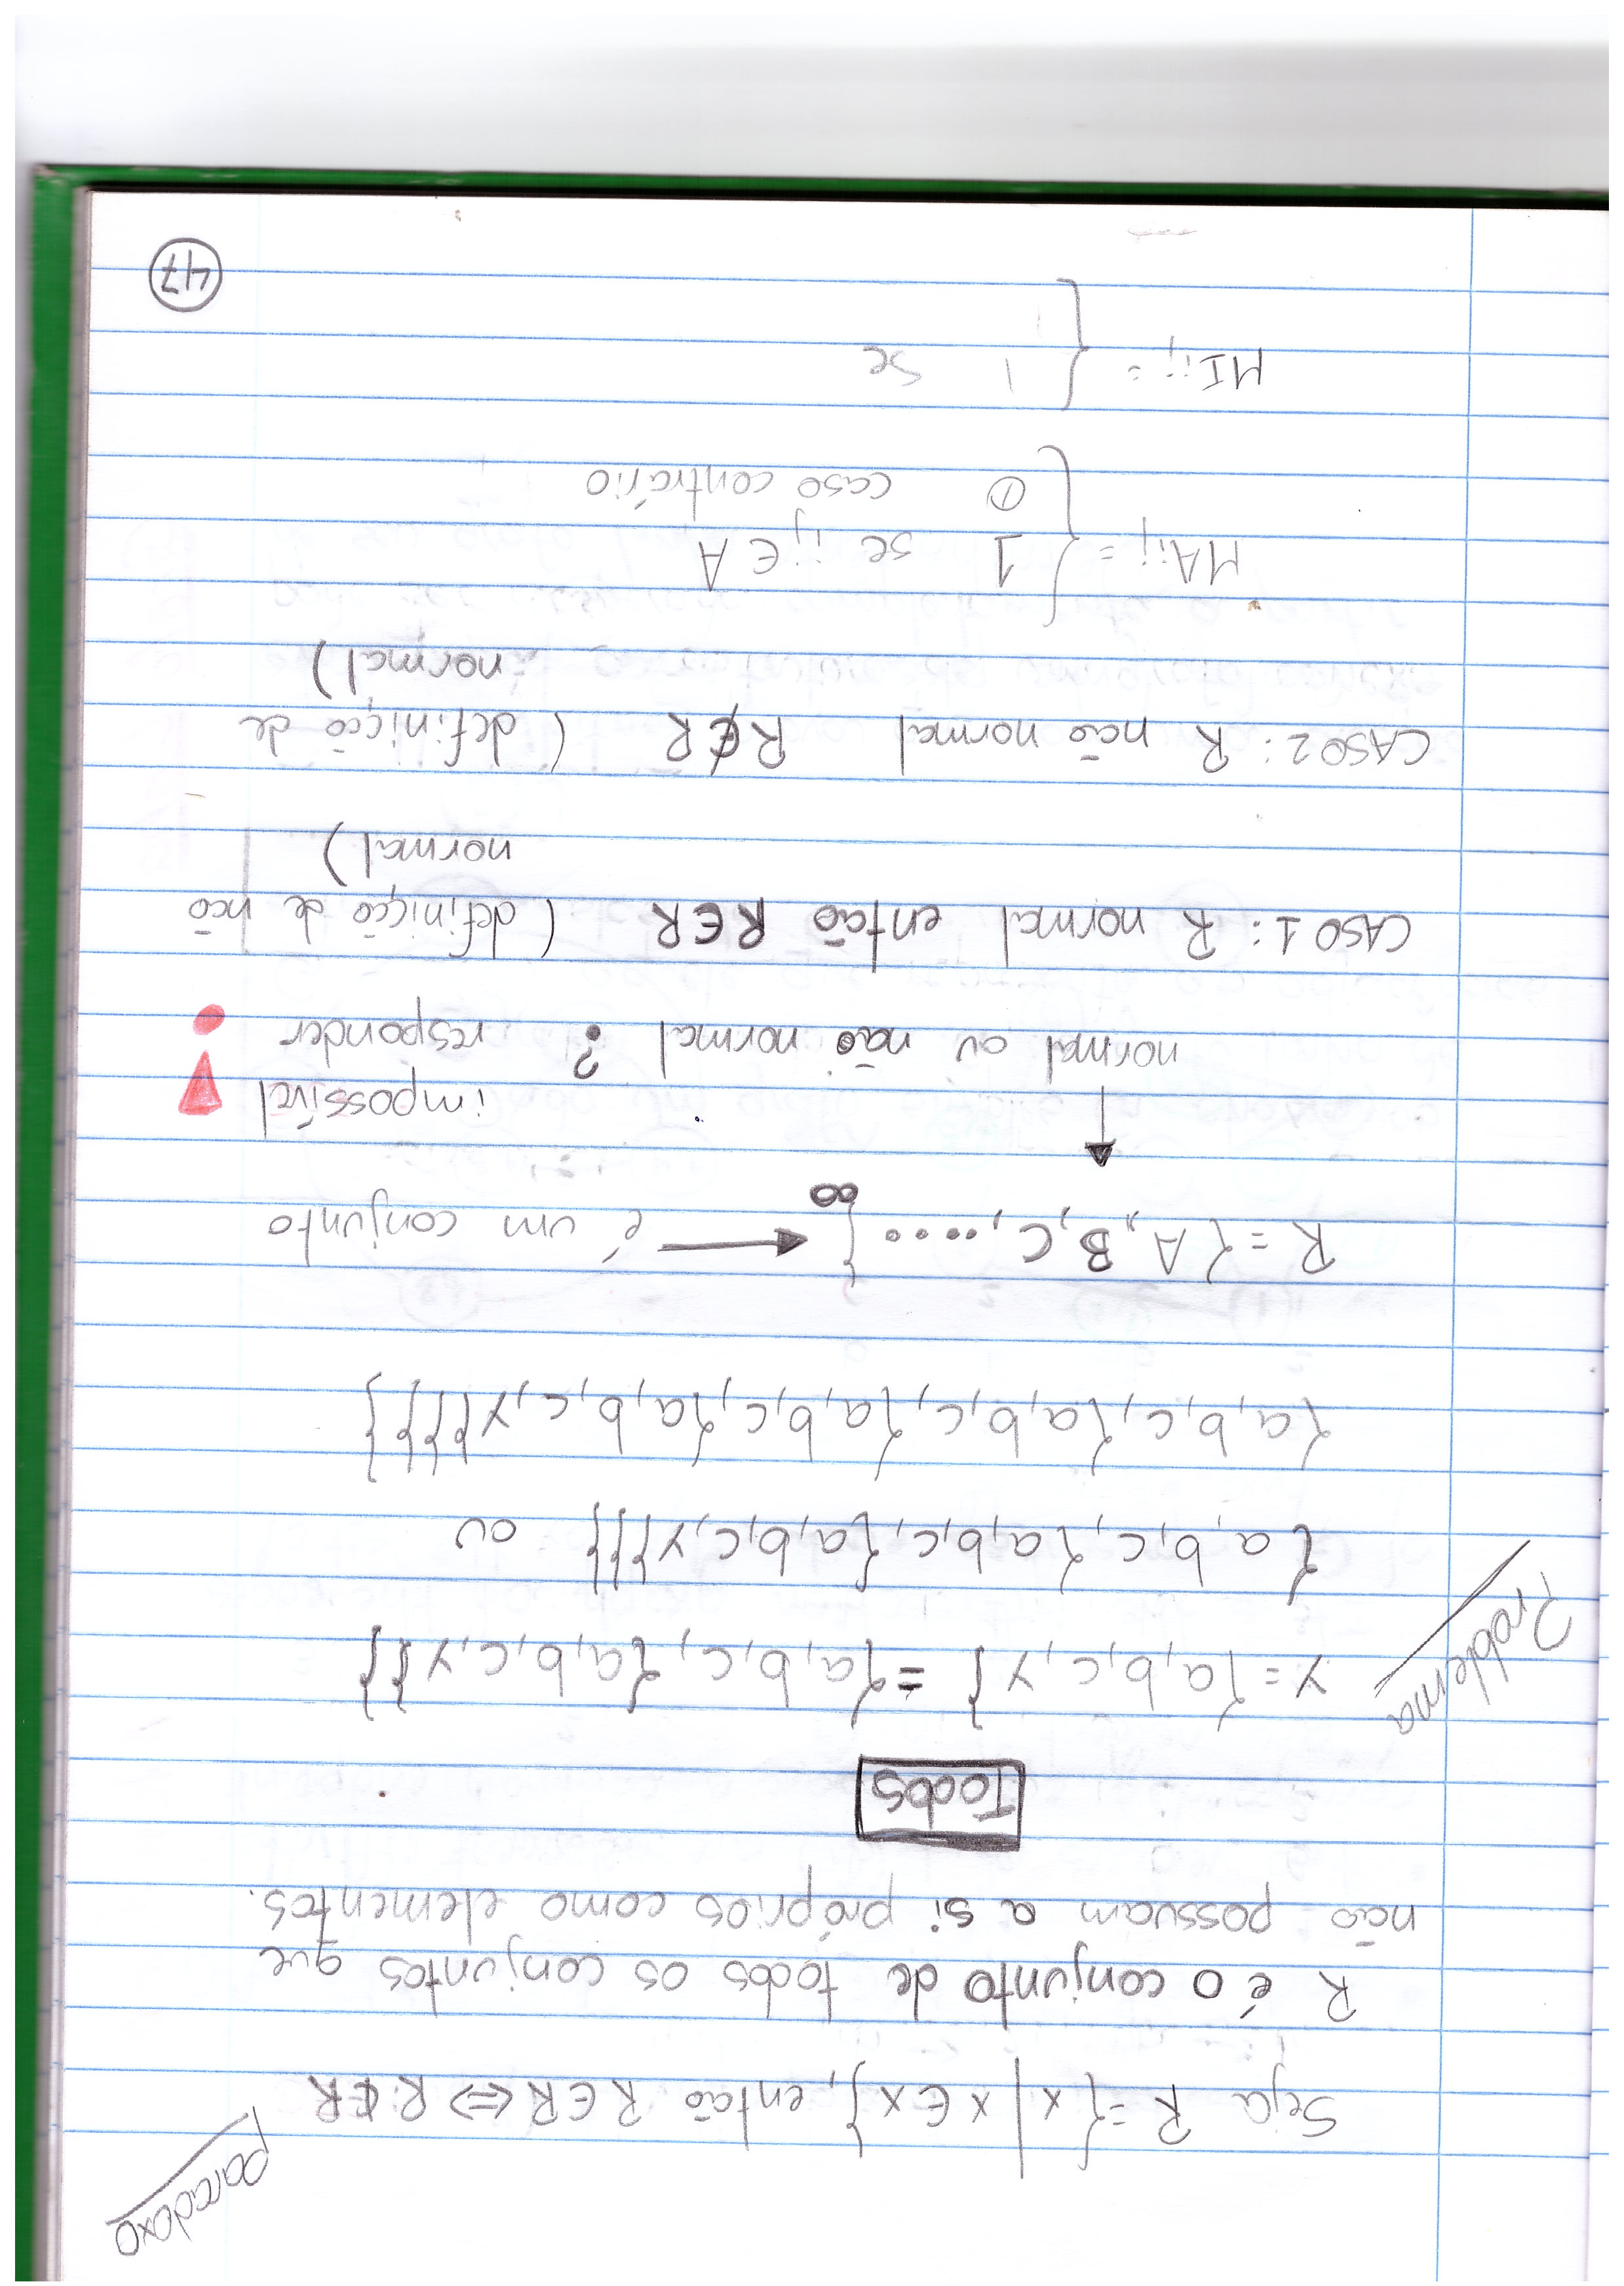 paradoxo
Seja R = { x | x ∈ x }, então R ∈ R ⇔ R ∉ R
R é o conjunto de todos os conjuntos que
não possuam a si próprios como elementos.
Todos
Problema
y = {a, b, c, y} = {a, b, c, {a, b, c, y}}
{a, b, c, {a, b, c, {a, b, c, y}}} ou
{a, b, c, {a, b, c, {a, b, c, {a, b, c, y}}}}
R = { A, B, C, .... }∞ ← é um conjunto
↑
normal ou não normal ? impossível responder !
CASO 1: R normal então R ∈ R ( definição de não
normal )
CASO 2: R não normal R ∉ R ( definição de
normal )
MAij = { 1 se ij ∈ A
0 caso contrário
MIij = { 1 se
47